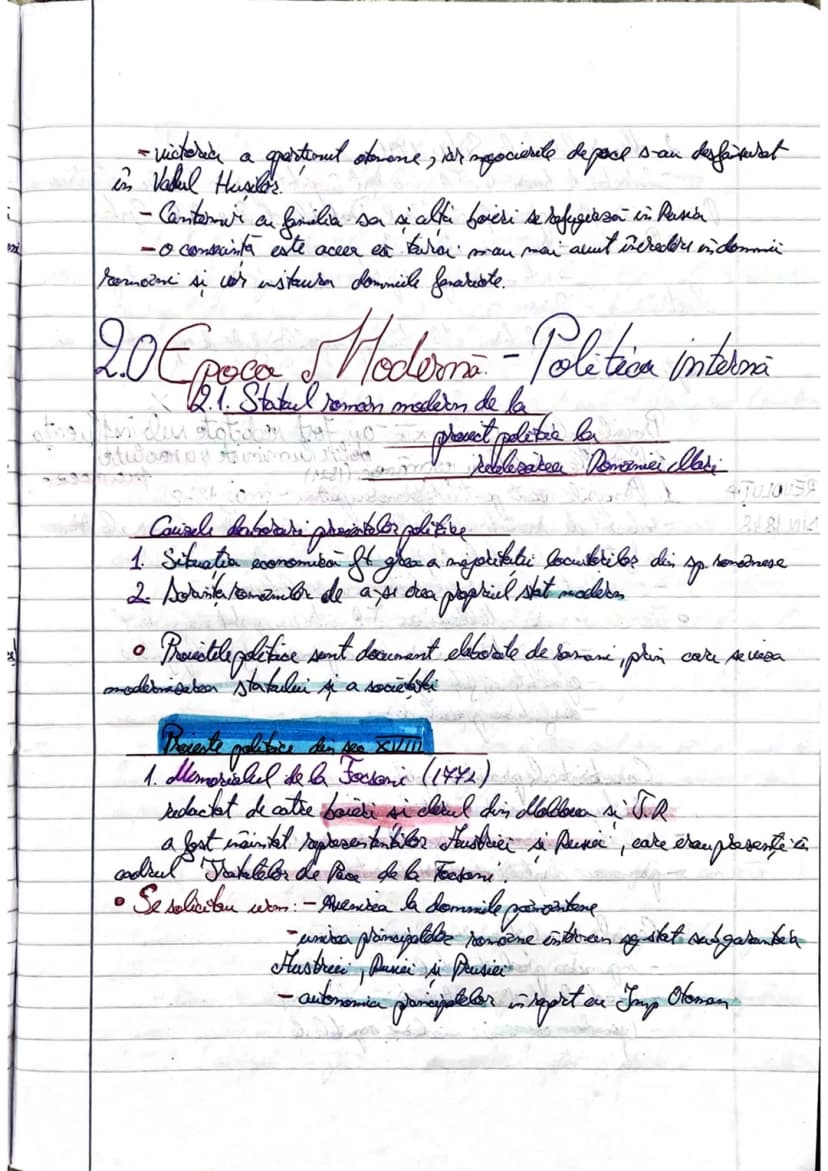 - victoria a aparținut otomane, iar negocierile de pace s-au desfășurat
în Vadul Hușilor.
- Cantemir cu familia sa și alți boieri se refugiază în Rusia
- o consecință este aceea că turcii nu au mai avut încredere în domnii
români și vor instaura domniile fanariote.
2.0 Epoca Modernă - Politica internă
2.1. Statul român modern de la
proiect politic la
realizarea României Mari
Cauzele elaborării proiectelor politice
1. Situația economică ft grea a majorității locuitorilor din sp. românesc
2. Dorința românilor de a-și crea propriul stat modern
• Proiectele politice sunt document elaborate de romani, prin care se viza
modernizarea statului și a societății
Proiecte politice din sec XVIII
1. Memorialul de la Focsani (1772)
redactat de catre boieri si clerul din Moldova si Ț.R
a fost înaintat reprezentanților Austriei și Rusiei, care erau prezente în
cadrul Tratatelor de Pace de la Focsani.
• Se solicitau urm: - revenirea la domniile pământene
- unirea principatelor române într-un sg stat sub garantia
Austriei, Rusiei si Prusiei
- autonomia principatelor în raport cu Imp Otoman